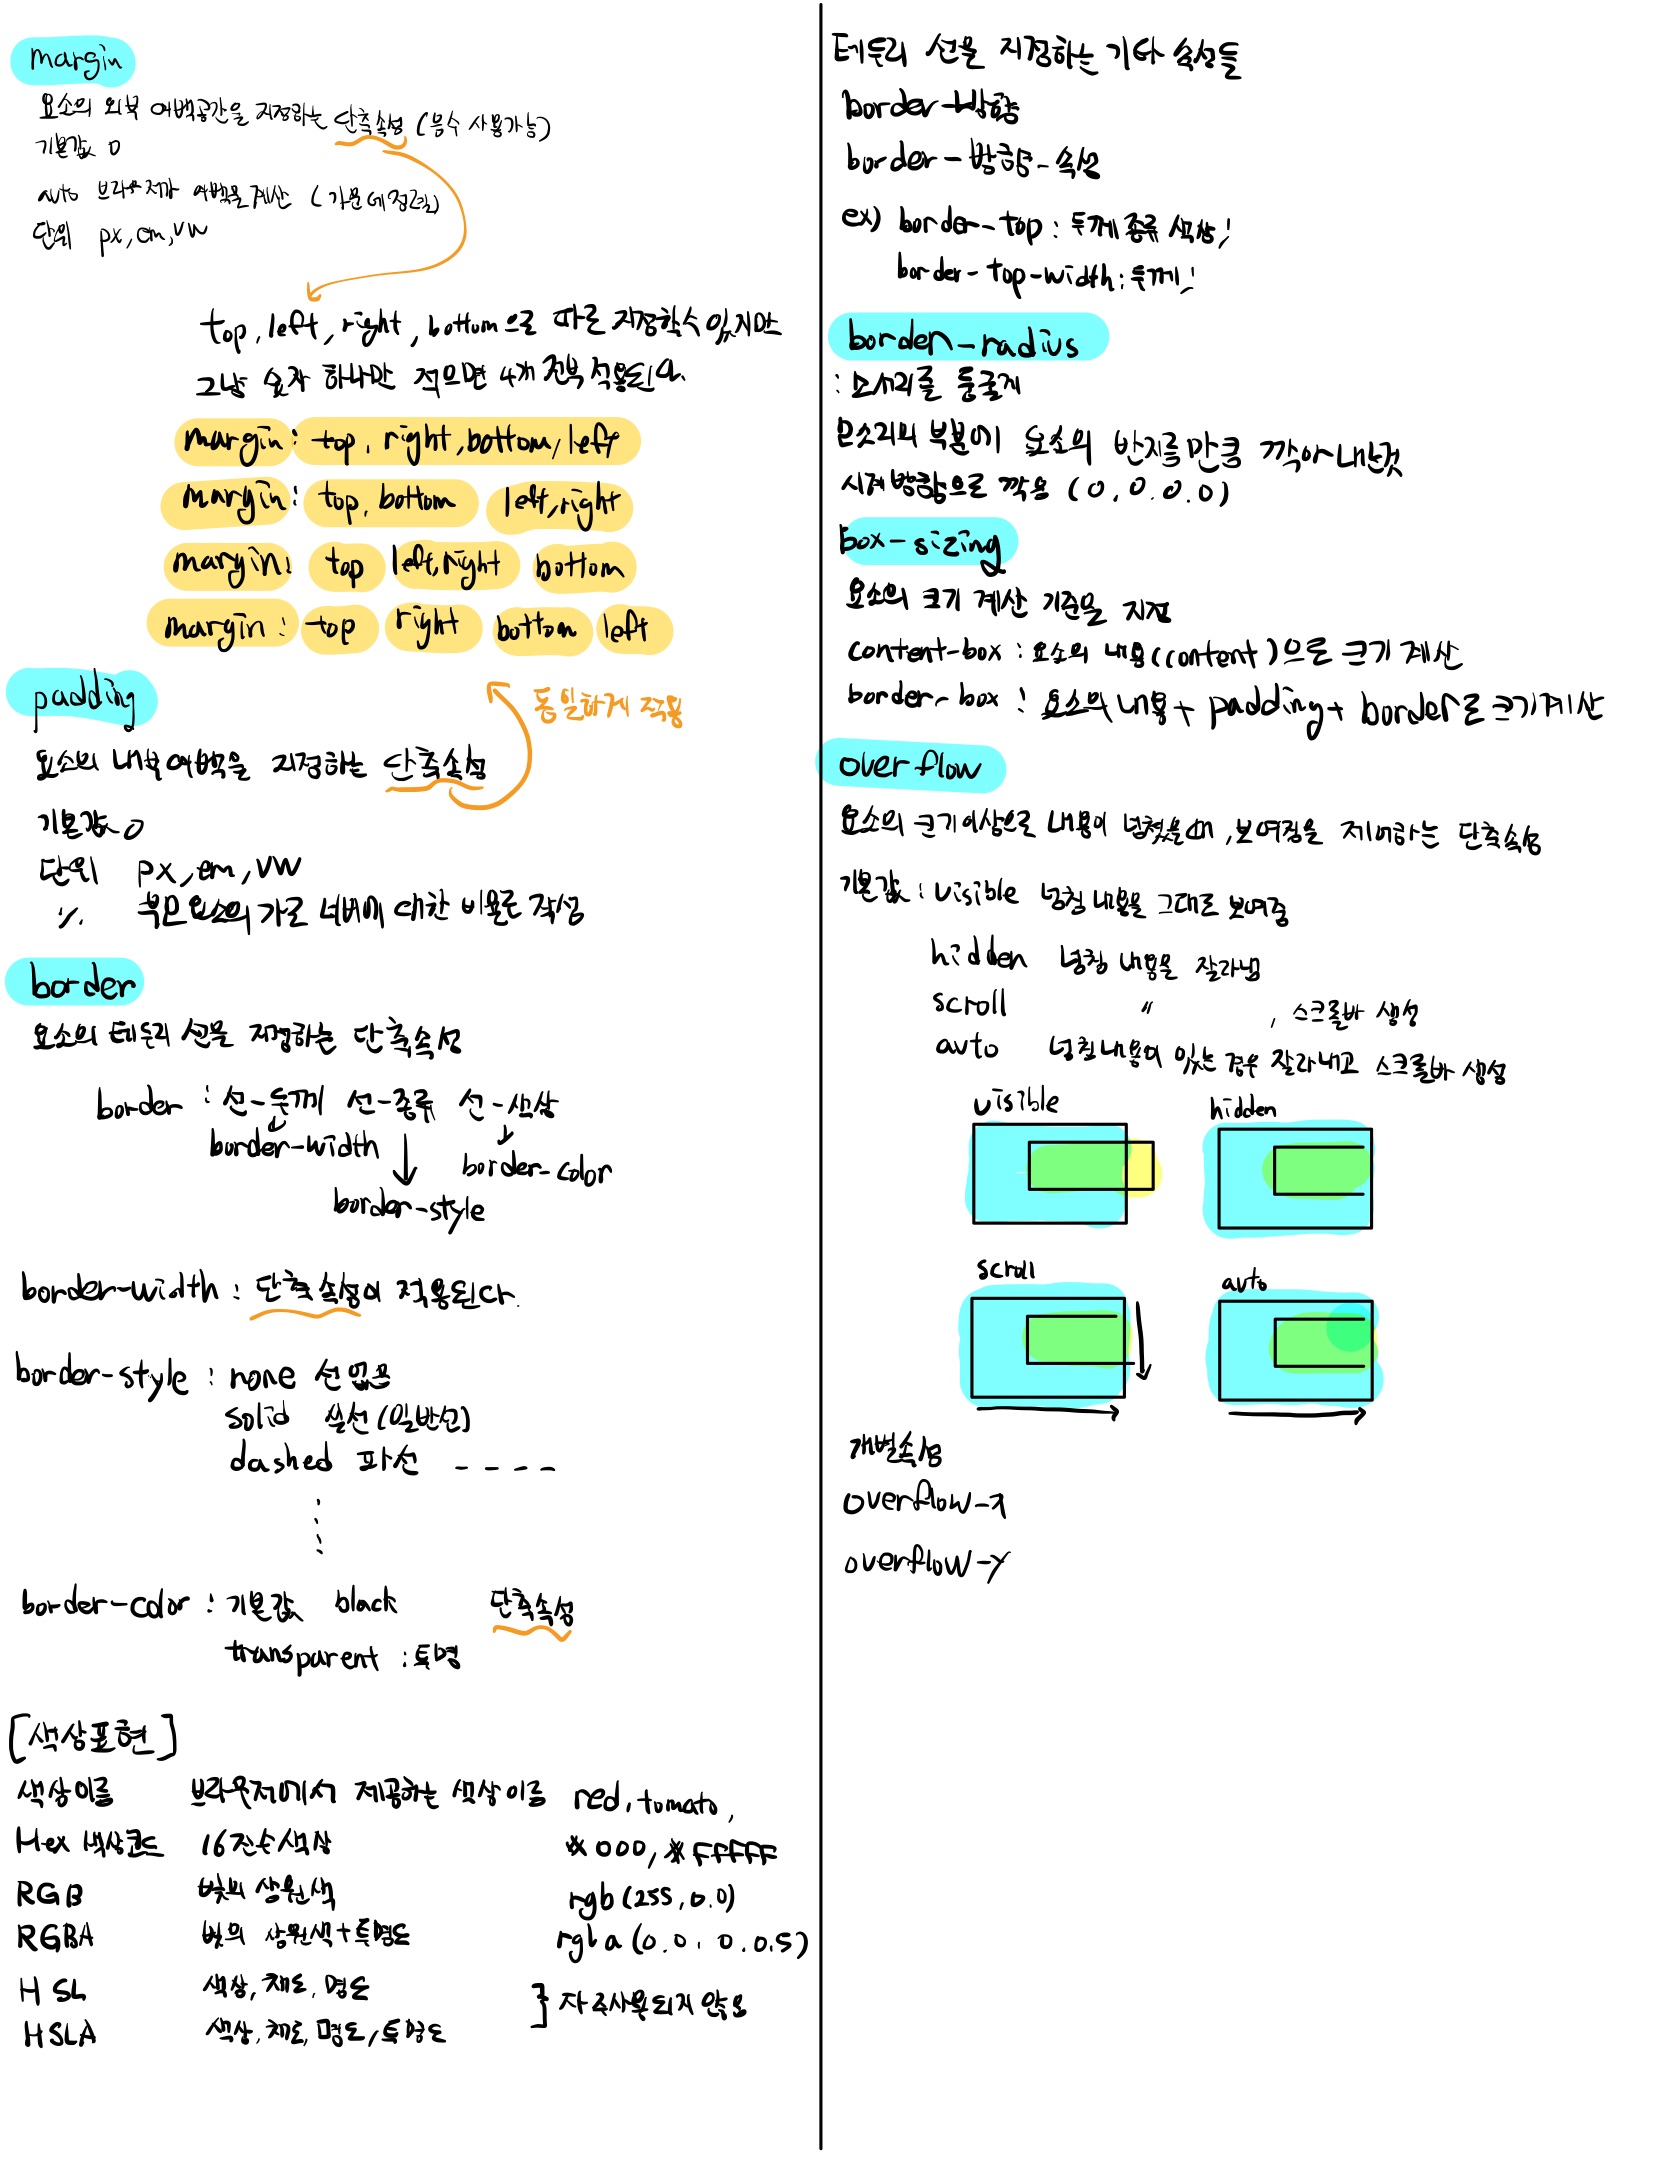 margin
요소의 외부 여백공간을 지정하는 단축속성 (음수 사용가능)
기본값 0
auto 브라우저가 여백을 계산 (가운데 정렬)
단위 px, em, vw
top, left, right, bottom으로 따로 지정할수 있지만
그냥 숫자 하나만 적으면 4개 전부 적용된다.
margin: top, right, bottom, left
margin: top, bottom left, right
margin: top left, right bottom
margin: top right bottom left
padding
동일하게 적용
요소의 내부여백을 지정하는 단축속성
기본값 0
단위 px, em, vw
% 부모요소의 가로 너비에 대한 비율로 작성
border
요소의 테두리 선을 지정하는 단축속성
border : 선-두께 선-종류 선-색상
border-width
border-color
border-style
border-width : 단축 속성이 적용된다.
border-style : none 선 없음
solid 실선 (일반선)
dashed 파선 - - - -
border-color : 기본값 black 단축속성
transparent : 투명
[색상표현]
색상이름 브라우저에서 제공하는 색상이름 red, tomato,
Hex 색상코드 16진수색상 #000, #FFFFFF
RGB 빛의 삼원색 rgb(255, 0.0)
RGBA 빛의 삼원색+투명도 rgba(0.0, 0.0.5)
HSL 색상, 채도, 명도
} 자주사용되지 않음
HSLA 색상, 채도, 명도, 투명도
테두리 선을 지정하는 기타 속성들
border-방향
border-방향-속성
ex) border-top : 두께 종류 색상;
border-top-width : 두께;
border-radius
: 모서리를 둥글게
모소리의 부분에 요소의 반지름만큼 깍아낸것
시계방향으로 작용 (0, 0. 0. 0)
box-sizing
요소의 크기 계산 기준을 지정
content-box : 요소의 내용(content)으로 크기 계산
border-box : 요소의 내용 + padding + border로 크기계산
overflow
요소의 크기이상으로 내용이 넘쳤을때, 보여짐을 제어하는 단축속성
기본값 : visible 넘친 내용을 그대로 보여줌
hidden 넘친 내용을 잘라냄
scroll " , 스크롤바 생성
auto 넘친내용이 있는 경우 잘라내고 스크롤바 생성
visible hidden
scroll auto
개별속성
overflow-x
overflow-y